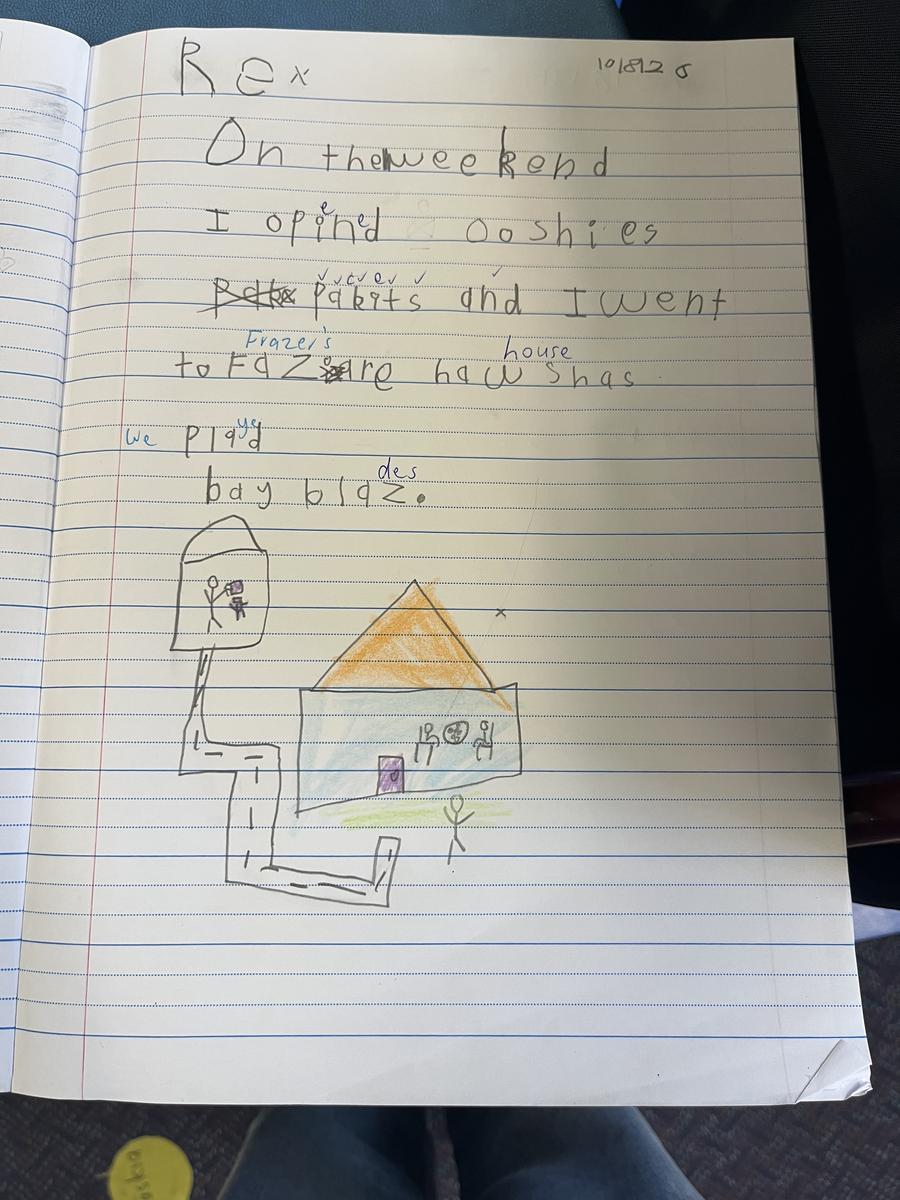 Rex 10/8/25
On the weekend
I opined ooshies
e e
pakits and I went
c e
Frazer's house
to Fazare hawshas
ye
We playd
des
bay blaz.